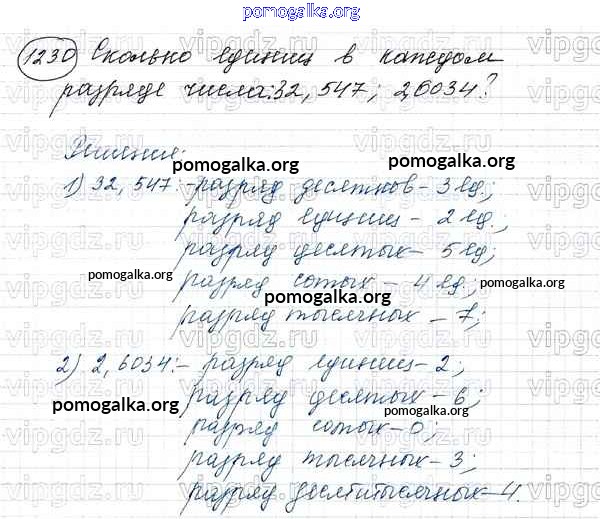 pomogalka.org
1230 Сколько единиц в каждом
разряде числа: 32,547; 2,6034?
Решение:
pomogalka.org
pomogalka.org
1) 32,547: - разряд десятков - 3 ед.;
разряд единиц - 2 ед.;
разряд десятых - 5 ед;
pomogalka.org
разряд сотых - 4 ед.;
pomogalka.org
pomogalka.org
разряд тысячных - 7;
2) 2,6034: - разряд единиц - 2;
разряд десятых - 6;
pomogalka.org
pomogalka.org
разряд сотых - 0;
разряд тысячных - 3;
разряд десятитысячных - 4.